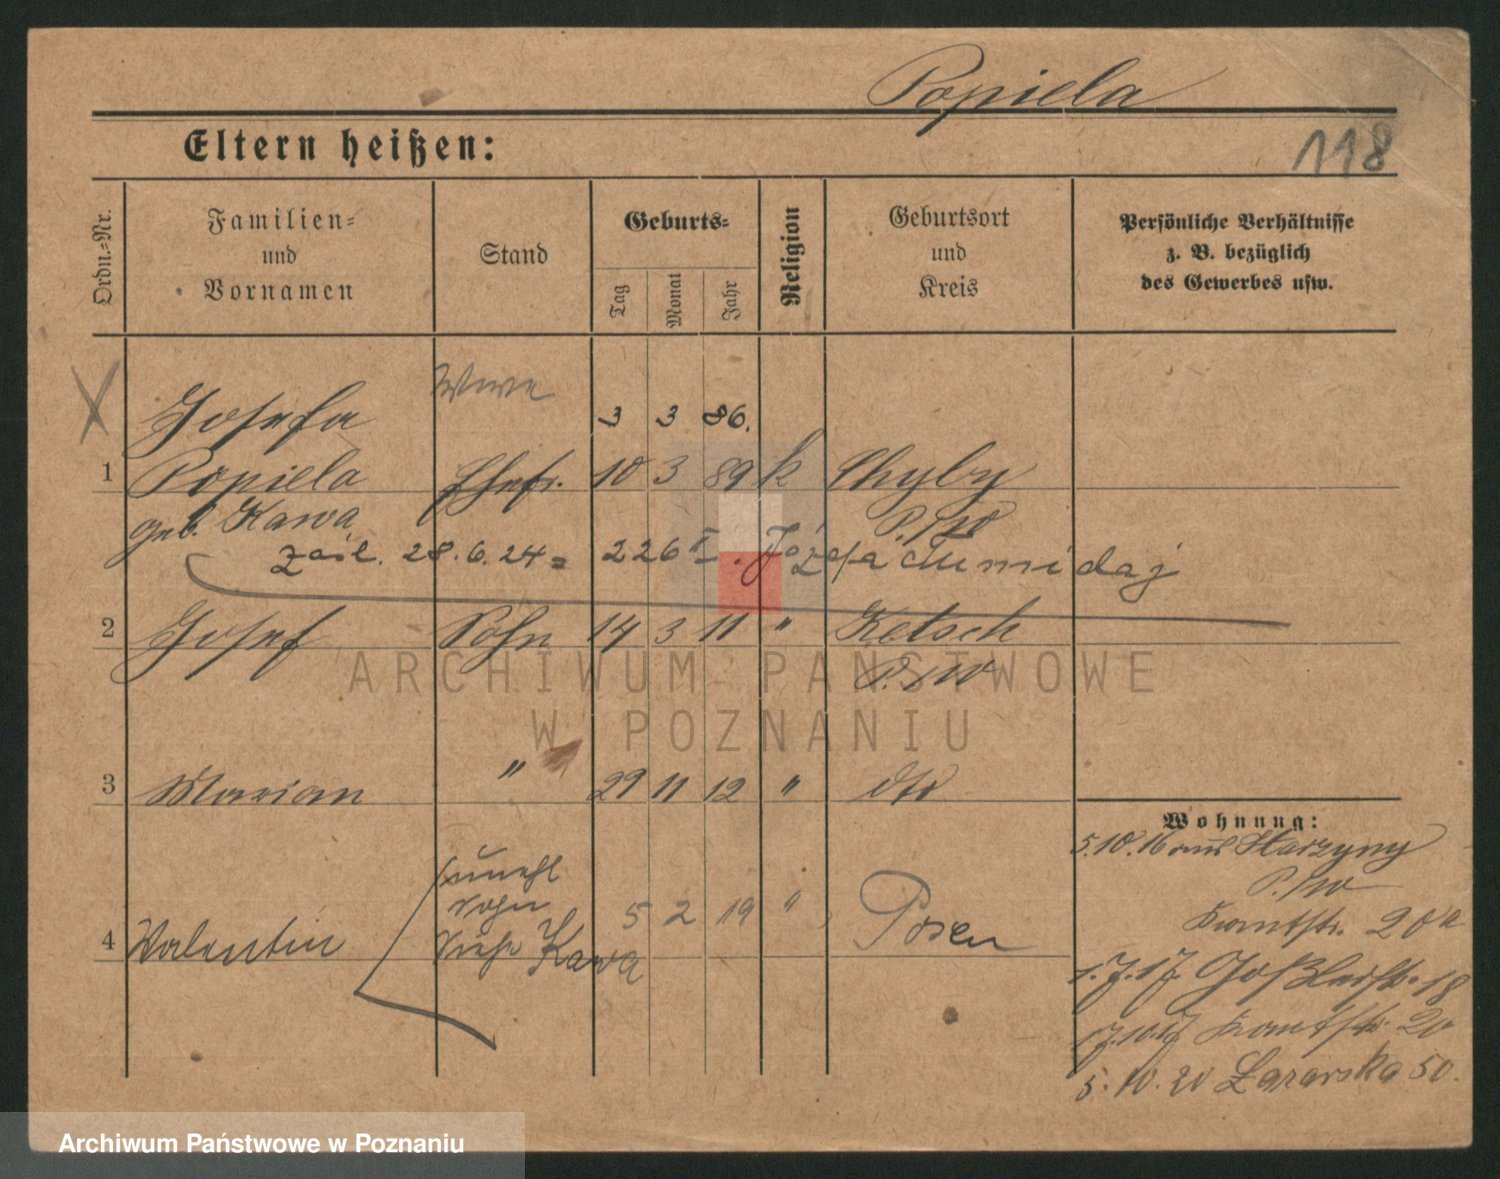 Popiela
118
Eltern heißen:
Ordn.-Nr.
Familien-
und
Vornamen
Stand
Geburts-
Tag
Monat
Jahr
Religion
Geburtsort
und
Kreis
Persönliche Verhältnisse
z. B. bezüglich
des Gewerbes usw.
X
Wwe
Josefa 3 3 86.
1 Popiela Ehefr. 10 3 89 k Chyby
geb. Kawa P. W
zaśl. 28.6.24 = 226 I. Józefa
2 Josef Sohn 14 3 11 " Ketsch
P. W
3 Marian " 29 11 12 " dto
Wohnung:
5.10.16 aus
P. W
unehl
Sohn
Kantstr. 20a
4 Valentin siehe Kawa 5 2 19 " Posen
1.7.17. Goßlerstr. 18
17.10.17 Kantstr. 20
5.10.20 Lazarska 50.
ARCHIWUM PAŃSTWOWE
W POZNANIU
Archiwum Państwowe w Poznaniu